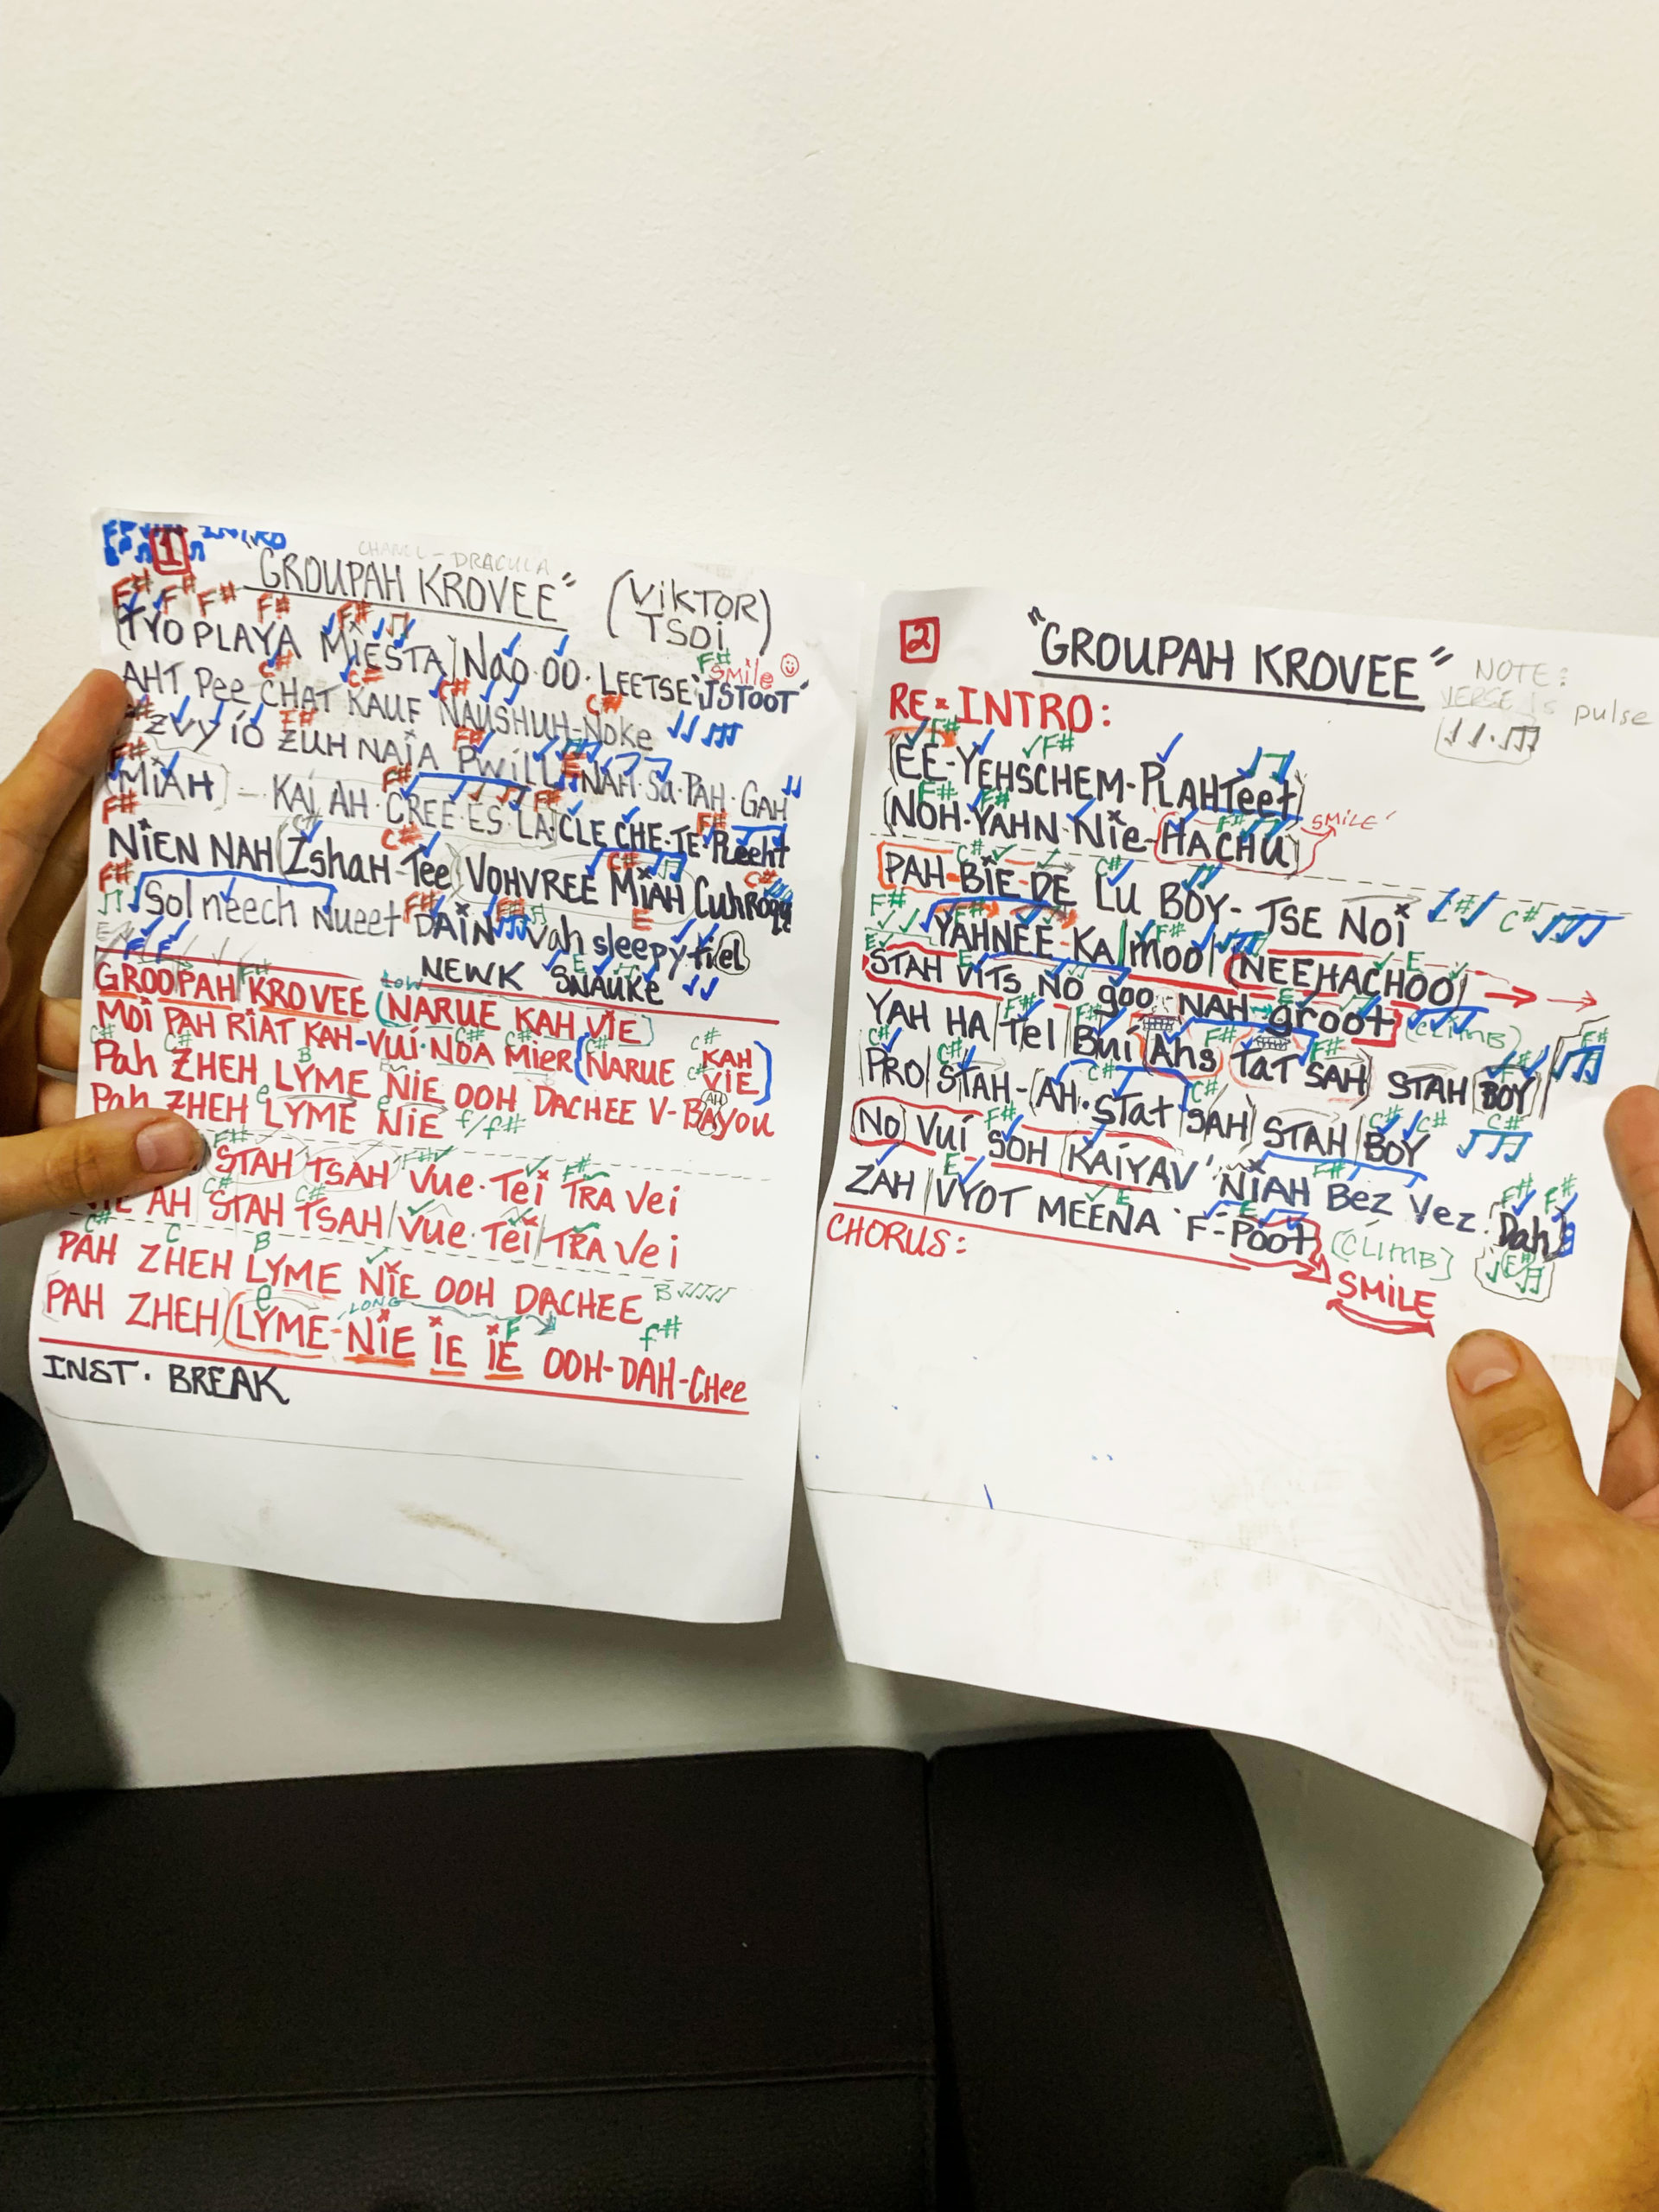 1 INTRO
CHANEL-DRACULA
"GROUPAH KROVEE" (VIKTOR TSOI)
F# F# F# F# F#
TYO PLAYA MIESTA NAO·OO·LEETSE 'JSTOOT'
F# SMILE
C# C# C# C#
AHT Pee CHAT KAUF NAUSHUH-NOKE
F# F#
ZVY IO ZUH NAIA PWILL NAH·Sa·PAH·GAH
F# F# F# E
(MIAH) - KAI AH·CREE·ES·LA CLE CHE·TE·Pleeht
F# C# C# F#
NIEN NAH ZshaH-Tee VOHVREE MIAH CuhRoqu
F# C# C#
Solneech Nueet DAIN Vah sleepytiel
F# F# E
NEWK SNAUKE
E
GROOPAH KROVEE (NARUE KAH VIE)
F# LOW
MOI PAH RIAT KAH-VUI·NOA MIER (NARUE KAH VIE)
C# C# C# C# C#
Pah ZHEH LYME NIE OOH DACHEE V-BAyou
C# B AH
Pah ZHEH LYME NIE f/f#
e e
STAH TSAH VUE·TEI TRA VEI
F# F# F#
AH STAH TSAH VUE·TEI TRA VEI
C# C#
PAH ZHEH LYME NIE OOH DACHEE
C# C B B
PAH ZHEH (LYME-NIE IE IE OOH-DAH-CHee
e LONG F f#
INST. BREAK
2
"GROUPAH KROVEE"
NOTE:
VERSE is pulse
RE-INTRO:
F# F#
EE-YEHSCHEM-PLAHTeet
F# F# F#
(NOH-YAHN-Nie-HACHU) SMILE
C# C#
PAH-BIE-DE LU BOY-TSE NOI C# C#
F# F# F#
YAHNEE-KA MOO (NEEHACHOO)
E E
STAH VITS NO goo NAH groot (CLIMB)
F# F# E F#
YAH HA TEL BUI AHS TAT SAH STAH BOY
C# C# F# F#
PRO STAH-(AH·STAT SAH) STAH BOY
C# C# C# C# C#
NO VUI SOH KAIYAV' NIAH Bez Vez·Dah
F# F# F# F#
ZAH VYOT MEENA 'F-POOT (CLIMB) E
E E E
CHORUS:
SMILE